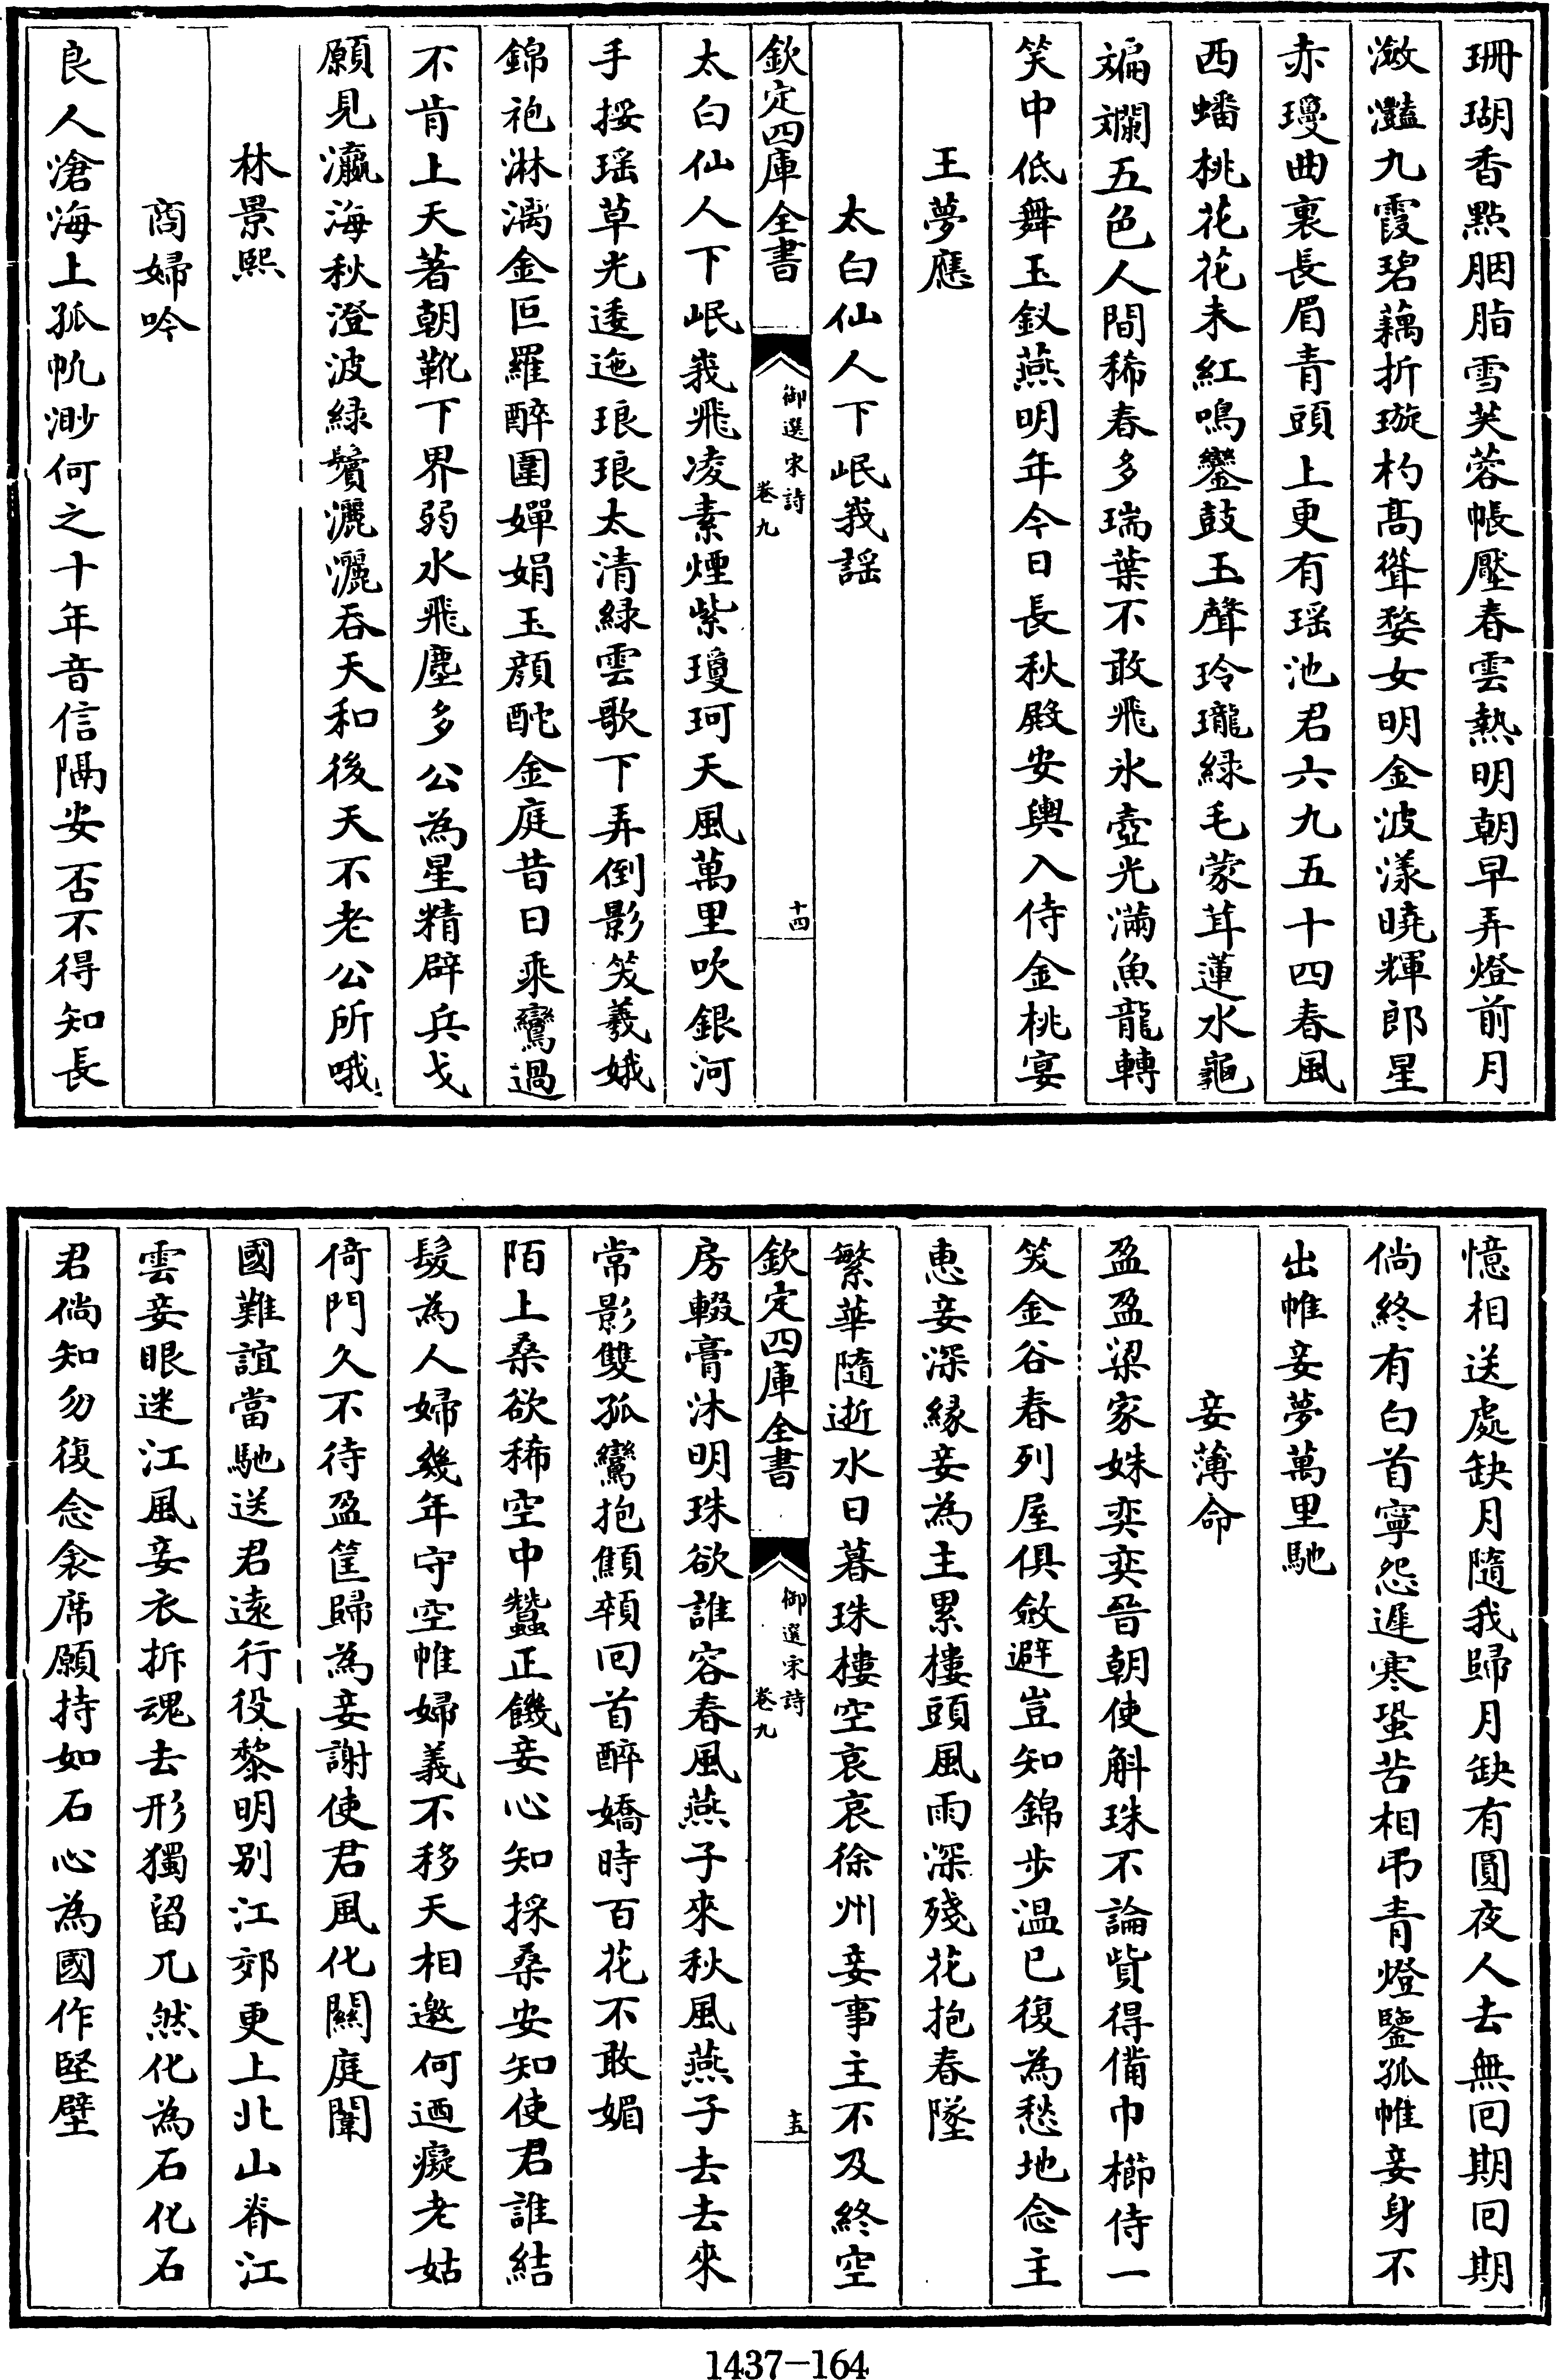 珊瑚香點胭脂雪芙蓉帳壓春雲熱明朝早弄燈前月
瀲灩九霞碧藕折璇杓髙聳婺女明金波漾曉輝郎星
赤瓊曲裏長眉青頭上更有瑶池君六九五十四春風
西蟠桃花花未紅鳴鑾鼓玉聲玲瓏緑毛蒙茸蓮水龜
斒斕五色人間稀春多瑞葉不敢飛氷壺光滿魚龍轉
笑中低舞玉釵燕明年今日長秋殿安輿入侍金桃宴
王夢應
太白仙人下岷峩謡
欽定四庫全書
御選宋詩
卷九
十四
太白仙人下岷峩飛凌素煙紫瓊珂天風萬里吹銀河
手挼瑶草光逶迤琅琅太清緑雲歌下弄倒影笑羲娥
錦袍淋漓金叵羅醉圍嬋娟玉顔酡金庭昔日乘鸞過
不肯上天著朝靴下界弱水飛塵多公為星精辟兵戈
願見瀛海秋澄波緑鬢灑灑吞天和後天不老公所哦
林景熙
商婦吟
良人滄海上孤帆渺何之十年音信隔安否不得知長
憶相送處缺月隨我歸月缺有圓夜人去無回期回期
倘終有白首寧怨遲寒蛩苦相弔青燈鑒孤帷妾身不
出帷妾夢萬里馳
妾薄命
盈盈梁家姝奕奕晉朝使斛珠不論貲得備巾櫛侍一
笑金谷春列屋俱斂避豈知錦步温已復為愁地念主
惠妾深緣妾為主累樓頭風雨深殘花抱春墜
繁華隨逝水日暮珠樓空哀哀徐州妾事主不及終空
欽定四庫全書
御選宋詩
卷九
十五
房輟膏沐明珠欲誰容春風燕子來秋風燕子去去來
常影雙孤鸞抱顦顇回首醉嬌時百花不敢媚
陌上桑欲稀空中蠶正饑妾心知採桑安知使君誰結
髮為人婦幾年守空帷婦義不移天相邀何迺癡老姑
倚門久不待盈筐歸為妾謝使君風化關庭闈
國難誼當馳送君遠行役黎明别江郊更上北山脊江
雲妾眼迷江風妾衣拆魂去形獨留兀然化為石化石
君倘知勿復念衾席願持如石心為國作堅壁
1437-164